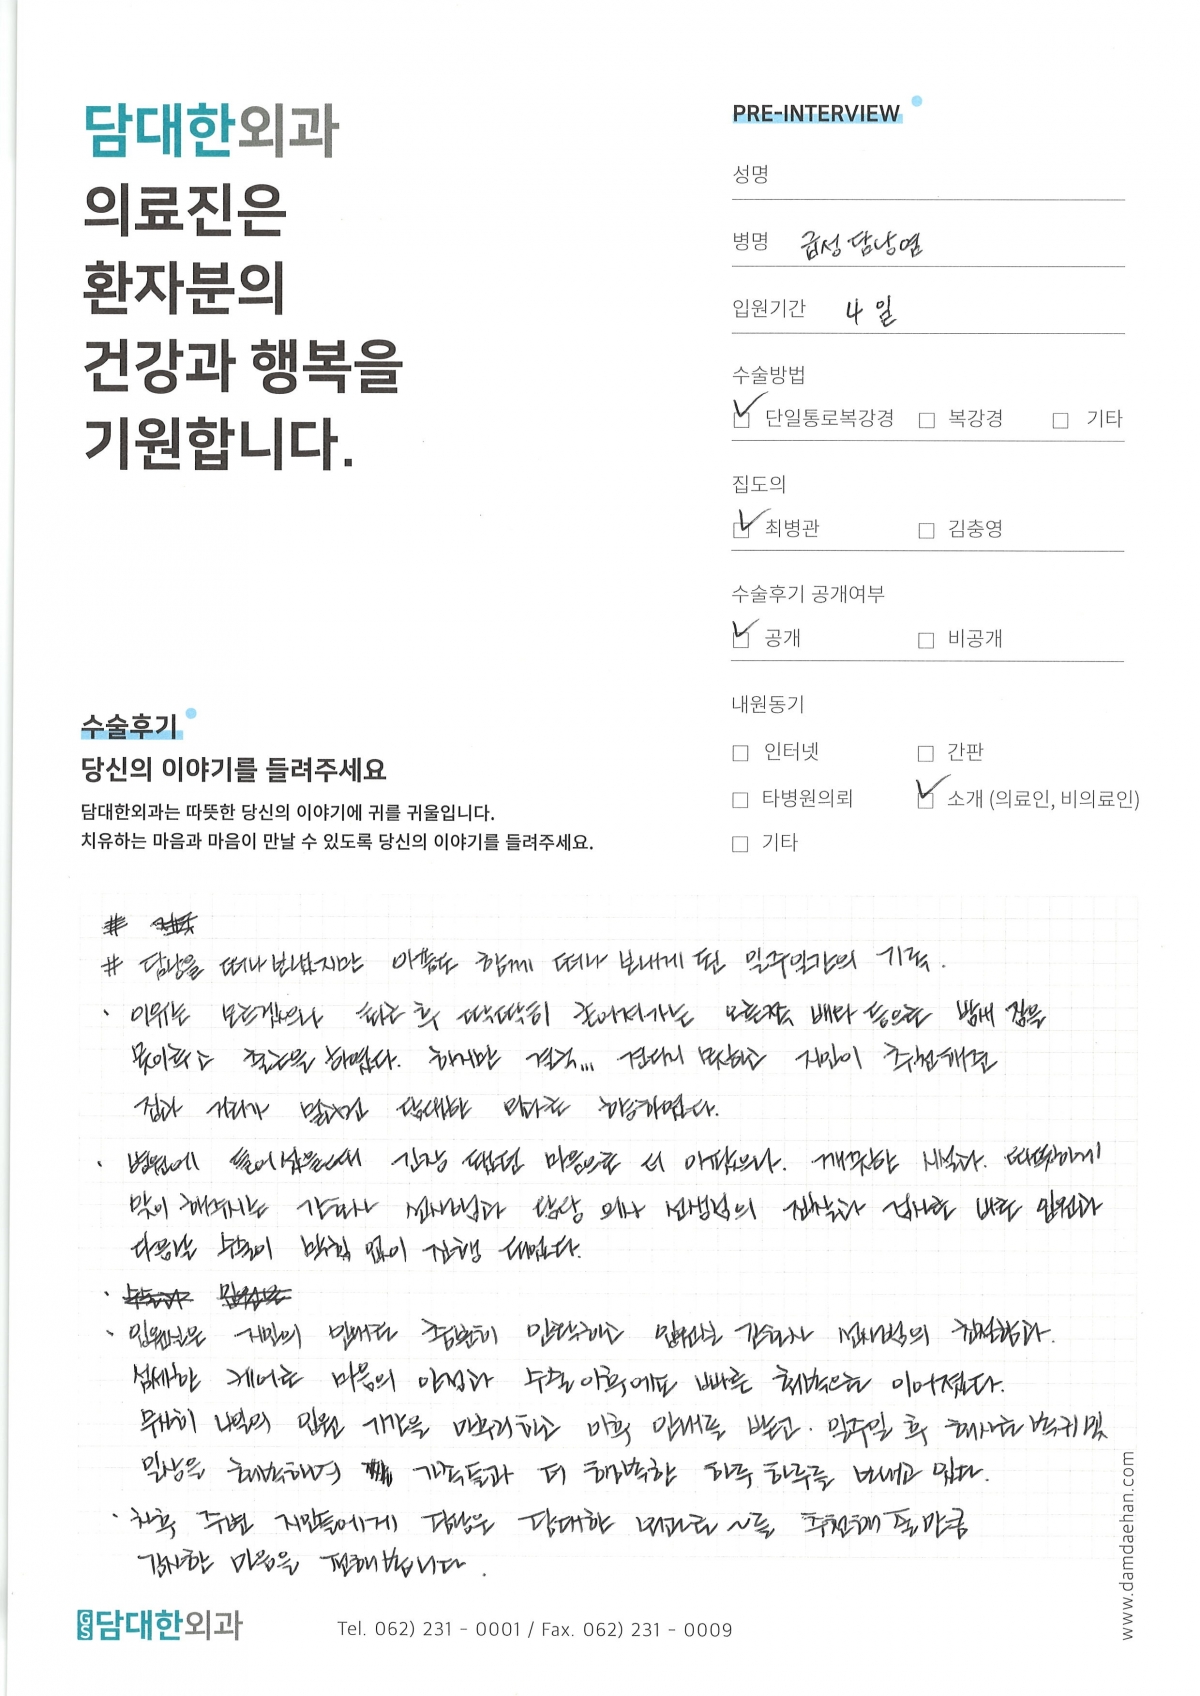 담대한외과
의료진은
환자분의
건강과 행복을
기원합니다.
PRE-INTERVIEW
성명
병명 급성 담낭염
입원기간 4 일
수술방법
단일통로복강경 복강경 기타
집도의
최병관 김충영
수술후기 공개여부
공개 비공개
내원동기
인터넷 간판
타병원의뢰 소개 (의료인, 비의료인)
기타
수술후기
당신의 이야기를 들려주세요
담대한외과는 따뜻한 당신의 이야기에 귀를 귀울입니다.
치유하는 마음과 마음이 만날 수 있도록 당신의 이야기를 들려주세요.
#
# 담낭을 떠나보냈지만 아픔도 함께 떠나 보내게 된 일주일간의 기록.
· 이유는 모르겠으나 퇴근 후 딱딱히 굳어져가는 오른쪽 배와 등으로 밤새 잠을
못이루고 출근을 하였다. 하지만 결국... 견디지 못하고 지인이 추천해준
집과 거리가 멀지만 담대한 외과로 향하였다.
· 병원에 들어섰을때 긴장 됐던 마음으로 더 아팠으나. 깨끗한 시설과. 따뜻하게
맞이해주시는 간호사 선생님과 담당 의사 선생님의 진찰과 검사로 바로 입원과
다음날 수술이 막힘 없이 진행 되었다.
·
· 입원실은 지인의 안내로 충분히 만족하고 입원실 간호사 선생님의 친절함과.
섬세한 케어로 마음의 안정과 수술 이후에도 빠른 회복으로 이어졌다.
무사히 4일의 입원 기간을 마무리하고 이후 안내를 받고. 일주일 후 회사로 복귀 및
일상을 회복하며 가족들과 더 행복한 하루 하루를 보내고 있다.
· 차후 주변 지인들에게 담낭은 담대한 외과로 ~를 추천해 줄만큼
감사한 마음을 전해봅니다.
GS 담대한외과
Tel. 062) 231 - 0001 / Fax. 062) 231 - 0009
www.damdaehan.com